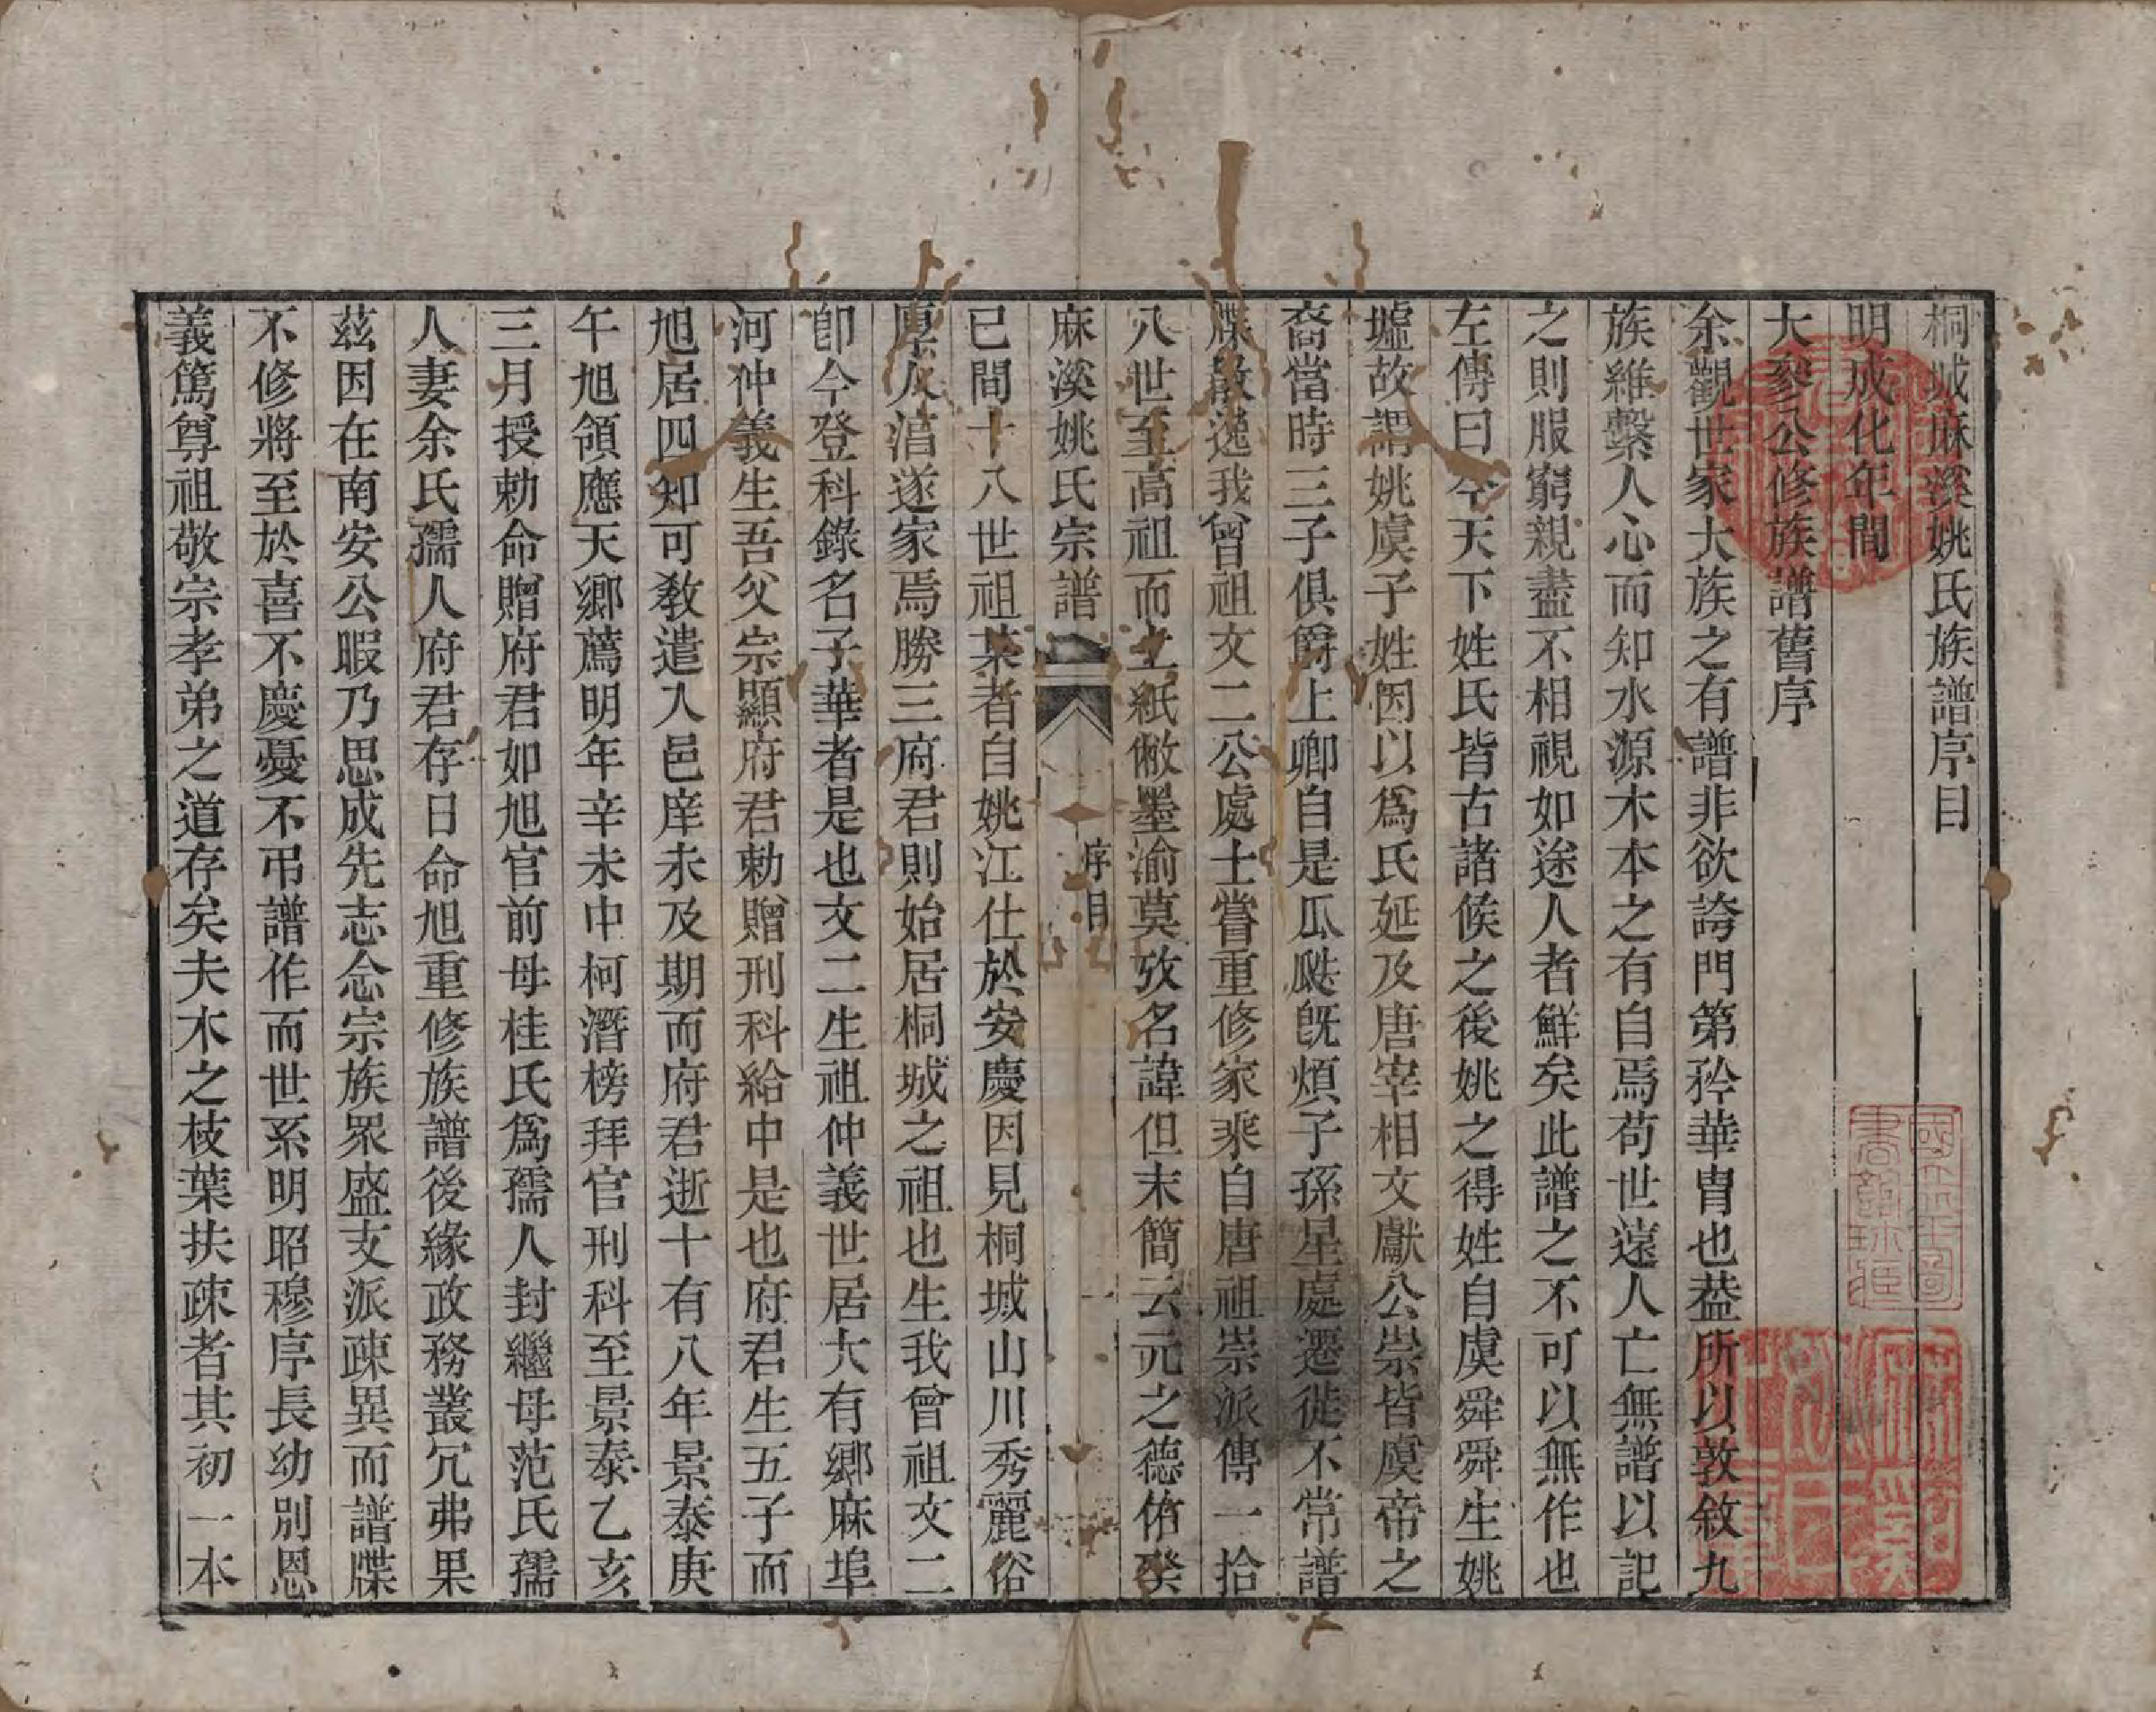 桐城麻溪姚氏族譜序目
明成化年間
大叅公修族譜舊序
余觀世家大族之有譜非欲誇門第矜華胄也葢所以敦敘九
族維繫人心而知水源木本之有自焉苟世遠人亡無譜以記
之則服窮親盡不相視如途人者鮮矣此譜之不可以無作也
左傳曰今天下姓氏皆古諸候之後姚之得姓自虞舜舜生姚
墟故謂姚虞子姓因以爲氏延及唐宰相文獻公崇皆虞帝之
裔當時三子俱爵上卿自是瓜瓞旣煩子孫星處遷徙不常譜
牒散逸我曾祖文二公處士嘗重修家乘自唐祖崇派傳一拾
八世至高祖而立紙敝墨渝莫攷名諱但末簡云元之德佑癸
麻溪姚氏宗譜
序目
已間十八世祖某者自姚江仕於安慶因見桐城山川秀麗俗
厚人淳遂家焉勝三府君則始居桐城之祖也生我曾祖文二
卽今登科錄名子華者是也文二生祖仲義世居大有鄉麻埠
河仲義生吾父宗顯府君勅贈刑科給中是也府君生五子而
旭居四知可敎遣入邑庠未及期而府君逝十有八年景泰庚
午旭領應天鄉薦明年辛未中柯潛榜拜官刑科至景泰乙亥
三月授勅命贈府君如旭官前母桂氏爲孺人封繼母范氏孺
人妻余氏孺人府君存日命旭重修族譜後緣政務叢冗弗果
茲因在南安公暇乃思成先志念宗族眾盛支派疎異而譜牒
不修將至於喜不慶憂不弔譜作而世系明昭穆序長幼別恩
義篤尊祖敬宗孝弟之道存矣夫木之枝葉扶疎者其初一本